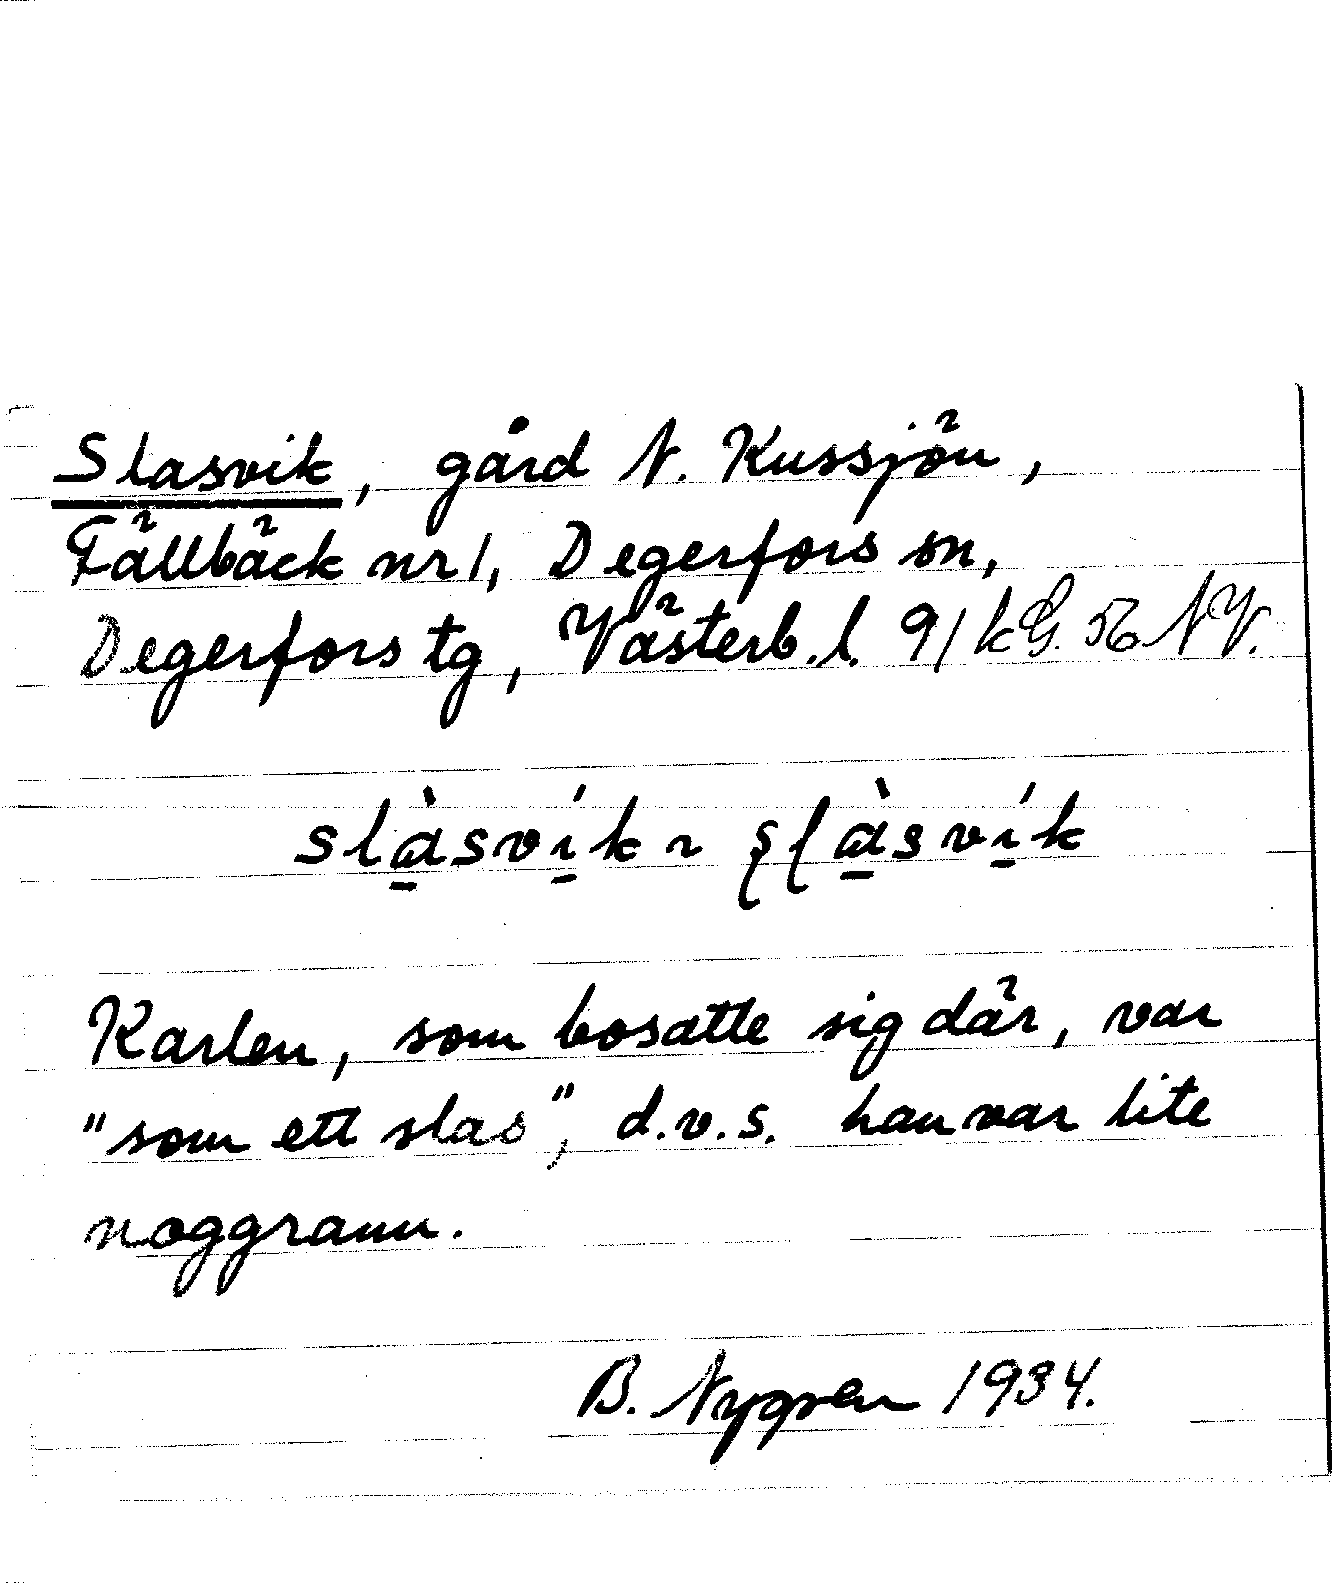 Slasvik, gård N. Kussjön,
Fällbäck nr 1, Degerfors sn,
Degerfors tg, Västerb. l. 91 kG. 56 NV.
slà̱sví̱k ~ şɭà̱sví̱k
Karlen, som bosatte sig där, var
"som ett slas", d.v.s. han var lite
noggrann.
B. Nygren 1934.